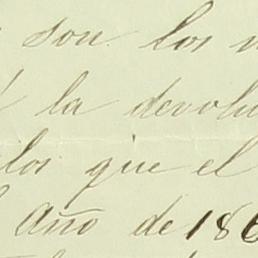 son los
la devolu
los que el
Año de 186